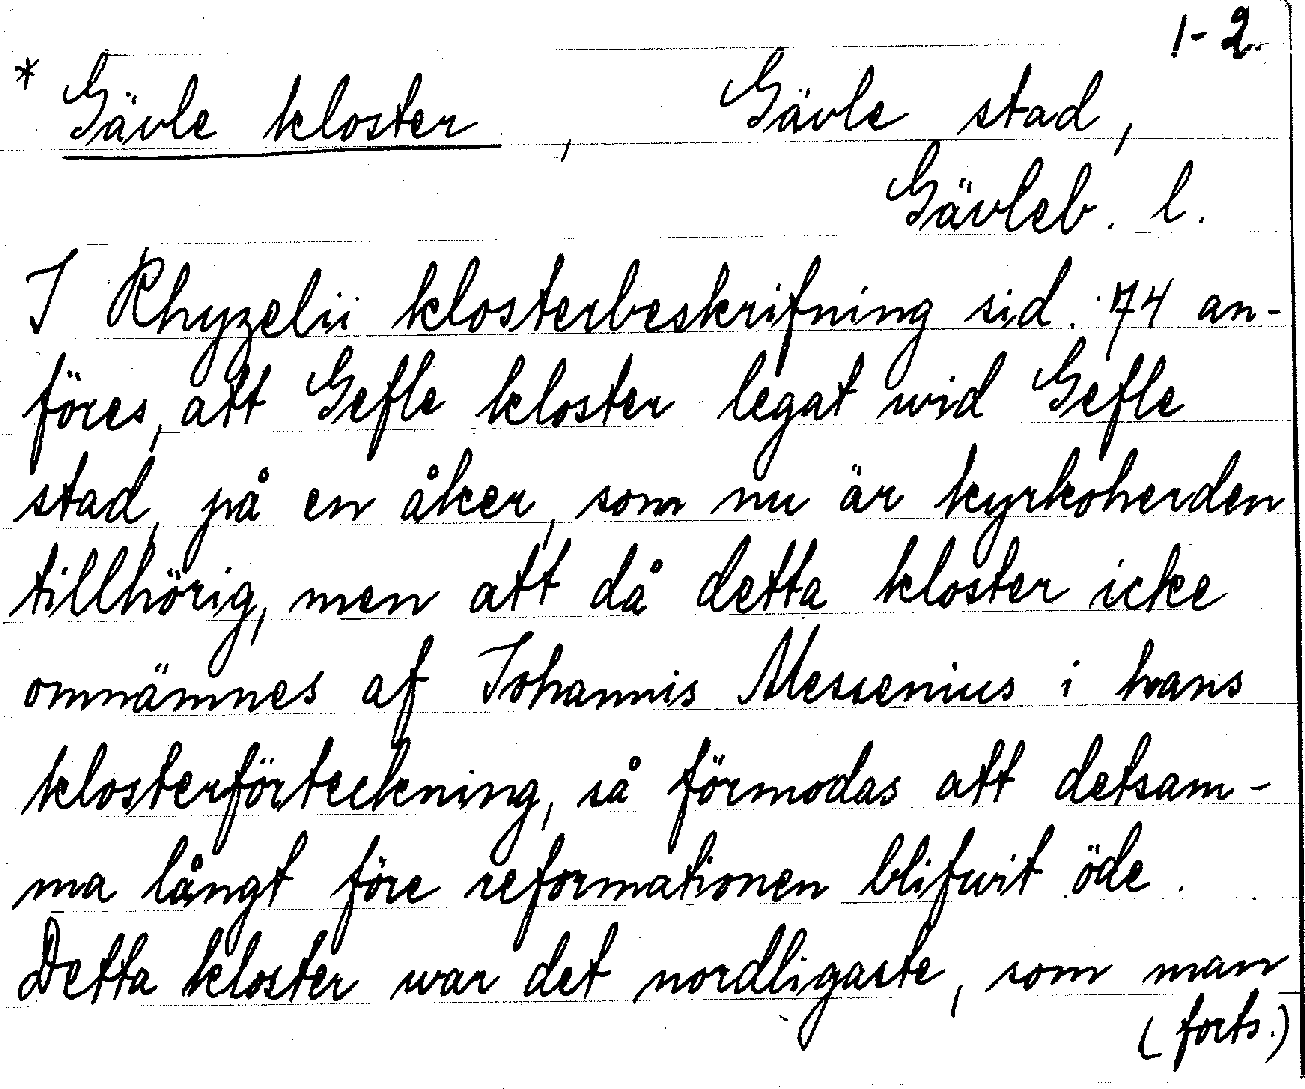 1-2.
* Gävle kloster, Gävle stad,
Gävleb. l.
I Rhyzelii klosterbeskrifning sid. 74 an-
föres, att Gefle kloster legat wid Gefle
stad, på en åker, som nu är kyrkoherden
tillhörig, men att då detta kloster icke
omnämnes af Johannis Messenius i hans
klosterförteckning, så förmodas att detsam-
ma långt före reformationen blifwit öde.
Detta kloster war det nordligaste, som man
(forts.)